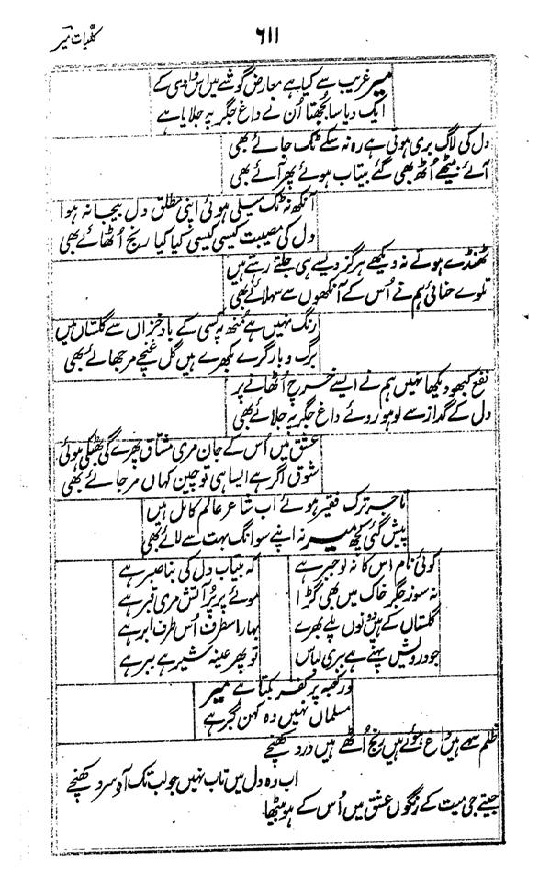 کلیات میر
٦١١
میر غریب سے کیا ہے معارض گوشے میں اس وادی کے
ایک دیا سا بجھتا اُن نے داغ جگر پہ جلایا ہے
دل کی لاگ بری ہوتی ہے رہ نہ سکے ٹک جائے بھی
آئے بیٹھے اُٹھ بھی گئے بیتاب ہوئے پھر آئے بھی
آنکھ نہ ٹک میلی ہوئی اپنی مطلق دل بیجا نہ ہوا
دل کی مصیبت کیسی کیسی کیا کیا رنج اُٹھائے بھی
ٹھنڈے ہوتے نہ دیکھے ہرگز ویسے ہی جلتے رہتے ہیں
تلوے حنائی ہم نے اُس کے آنکھوں سے سہلائے بھی
رنگ نہیں ہے منھ پہ کسی کے باد خزاں سے گلستاں میں
برگ و بار گرے بکھرے ہیں گل غنچے مرجھائے بھی
نفع کبھو دیکھا نہیں ہم نے ایسے خرچ اُٹھانے پر
دل کے گداز سے لوہو روئے داغ جگر پہ جلائے بھی
عشق میں اُس کے جان مری مشتاق پھرے گی بھٹکی ہوئی
شوق اگر ہے ایسا ہی تو چین کہاں مر جائے بھی
تاجے ترک فقیر ہوئے اب شاعر عالم کامل ہیں
پیش گئی کچھ میر نہ اپنے سوانگ بہت سے لائے بھی
کوئی نام اس کا نہ لو جبر ہے
کہ بیتاب دل کی بنا صبر ہے
نہ سوز جگر خاک میں بھی گڑا
موئے پر پُر آتش مری قبر ہے
گلستاں کے ہیں دونوں پلے بھرے
بہار اسطرف اُس طرف ابر ہے
جو درویش پہنے ہے ببری لباس
تو پھر عینہ شیر ہے ببر ہے
در کعبہ پر کفر بکتا ہے میر
مسلماں نہیں وہ کہن گبر ہے
ظلم سہے ہیں داغ ہوئے ہیں رنج اُٹھے ہیں درد کھنچے
اب وہ دل میں تاب نہیں جو لب تک آہ سرد کھنچے
جیتے جی میت کے رنگوں عشق میں اُس کے ہو بیٹھا